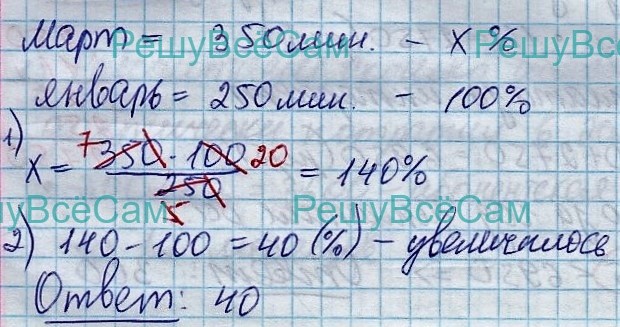 Март = 350 мин. – х%
РешуВсёСам РешуВсёСам
январь = 250 мин. – 100%
1)
х = 7 350 · 100 20 / 250 5 = 140%
РешуВсёСам РешуВсёСам
2) 140 – 100 = 40 (%) – увеличилось
Ответ: 40